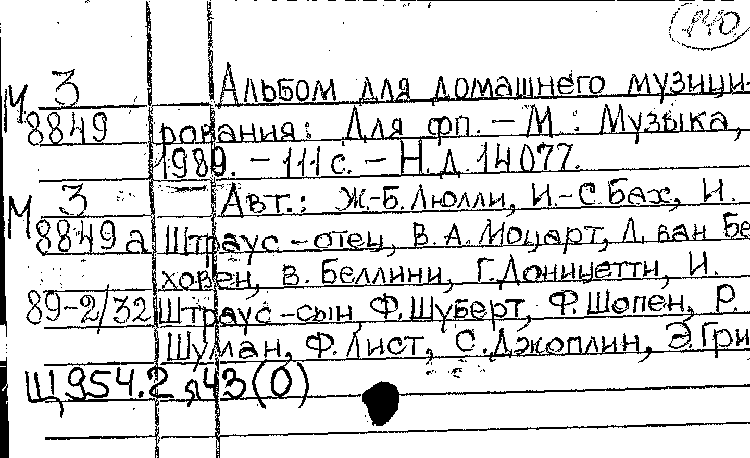 840
М 3 Альбом для домашнего музици-
8849 рования: Для фп. – М : Музыка,
1989. – 111 с. – Н.д. 14077.
М 3 Авт.: Ж.-Б. Люлли, И.-С. Бах, И.
8849 а Штраус – отец, В. А. Моцарт, Л. ван Бе
ховен, В. Беллини, Г. Доницетти, И.
89-2/32 Штраус – сын, Ф. Шуберт, Ф. Шопен, Р.
Шуман, Ф. Лист, С. Джоплин, Э. Гри
Щ 954.2 я 43 (0)